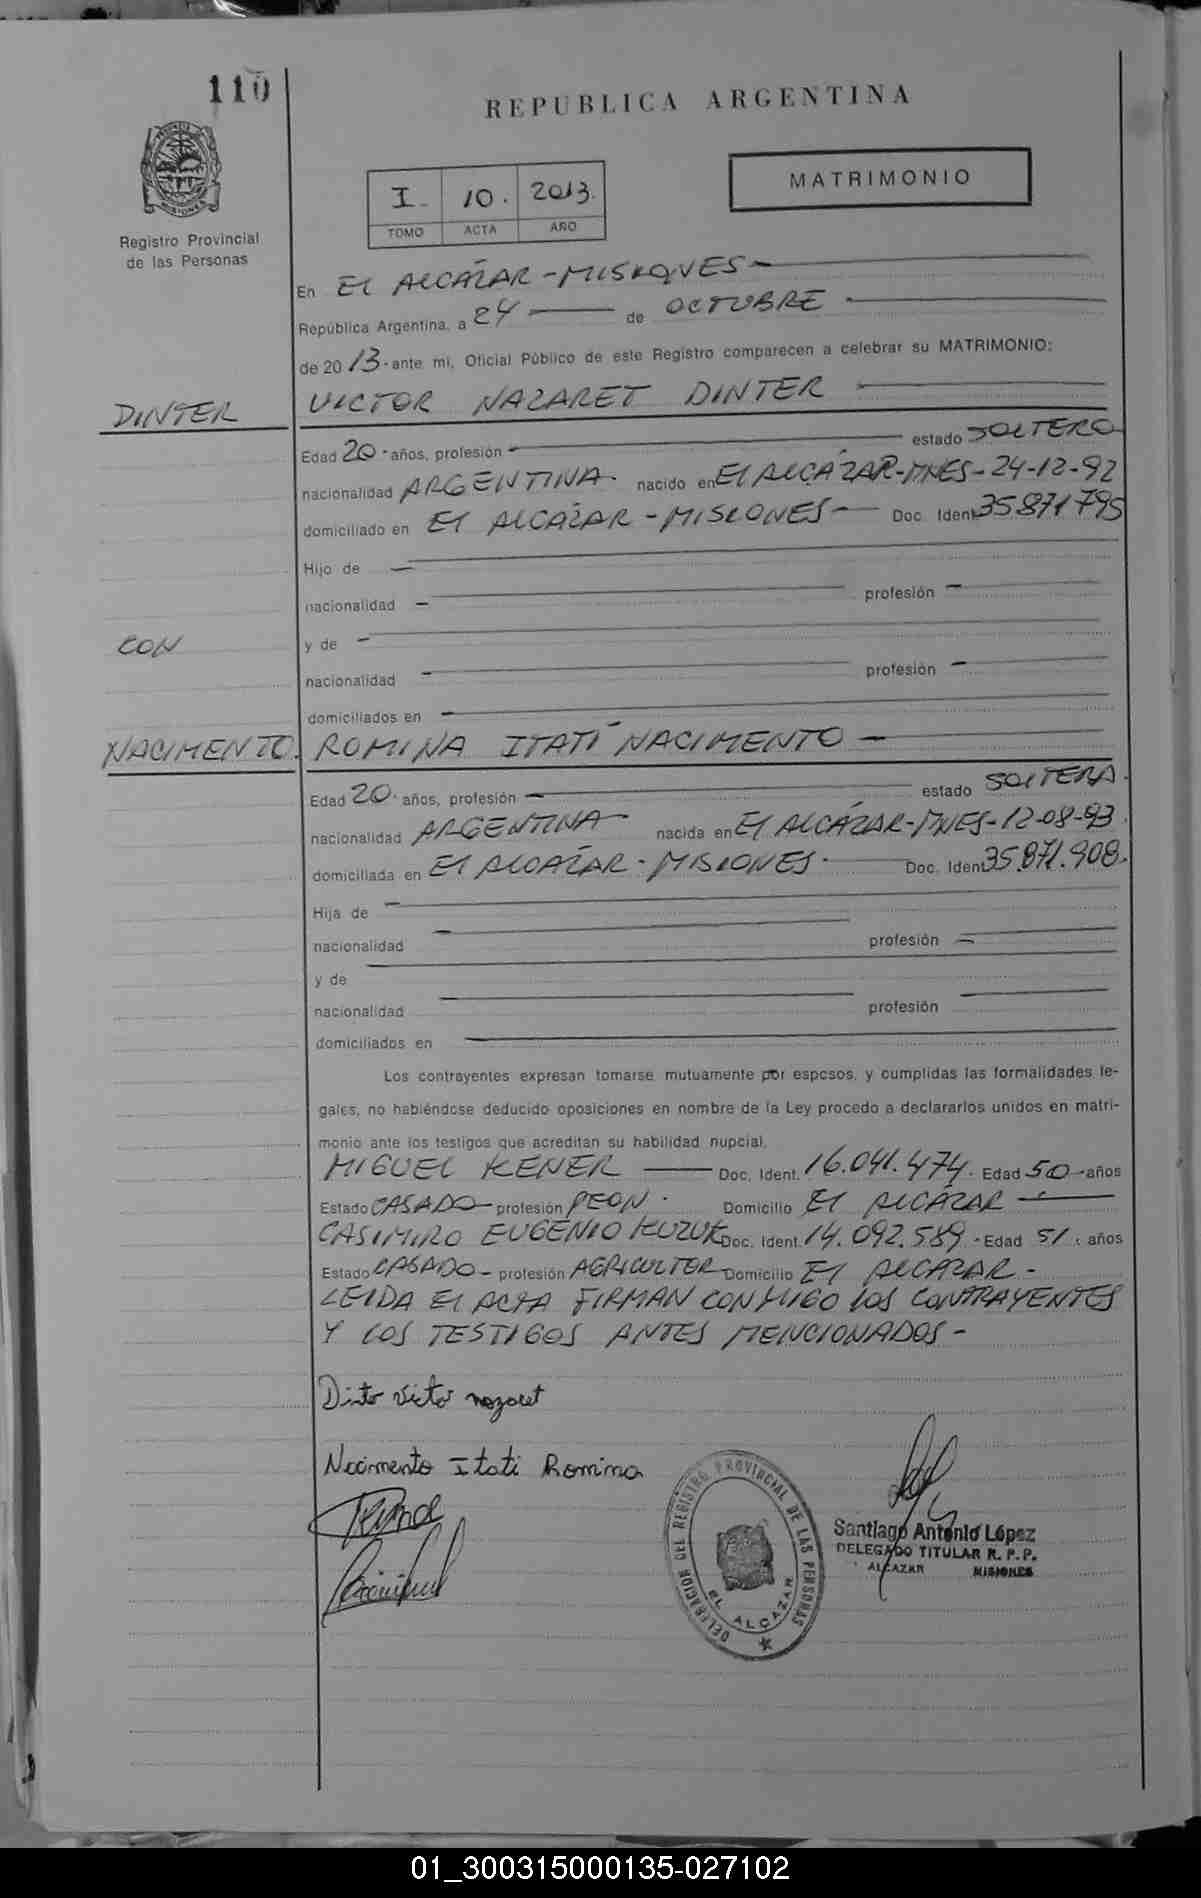 110
REPUBLICA ARGENTINA
MATRIMONIO
I- 10. 2013.
TOMO ACTA AÑO
Registro Provincial
de las Personas
En El ALCAZAR-MISIONES-
República Argentina, a 24 de OCTUBRE
de 2013-ante mi, Oficial Público de este Registro comparecen a celebrar su MATRIMONIO:
DINTER VICTOR NAZARET DINTER
Edad 20-años, profesión - estado SOLTERO
nacionalidad ARGENTINA- nacido en El ALCAZAR-MNES-24-12-92
domiciliado en El ALCAZAR-MISIONES- Doc. Ident. 35871795
Hijo de -
nacionalidad - profesión -
CON y de -
nacionalidad - profesión -
domiciliados en -
NACIMENTO. ROMINA ITATÍ NACIMENTO -
Edad 20- años, profesión - estado SOLTERA.
nacionalidad ARGENTINA- nacida en El ALCAZAR-MNES-12-08-93.
domiciliada en El ALCAZAR-MISIONES- Doc. Ident. 35.871.908.
Hija de -
nacionalidad - profesión -
y de
nacionalidad - profesión -
domiciliados en -
Los contrayentes expresan tomarse mutuamente por esposos, y cumplidas las formalidades le-
gales, no habiéndose deducido oposiciones en nombre de la Ley procedo a declararlos unidos en matri-
monio ante los testigos que acreditan su habilidad nupcial.
MIGUEL KENER - Doc. Ident. 16.041.474. Edad 50-años
Estado CASADO- profesión PEON. Domicilio El ALCAZAR-
CASIMIRO EUGENIO KUZUK Doc. Ident. 14.092.589.-Edad 51. años
Estado CASADO- profesión AGRICULTOR Domicilio El ALCAZAR-
LEIDA El ACTA FIRMAN CONMIGO LOS CONTRAYENTES
Y LOS TESTIGOS ANTES MENCIONADOS-
Dinter Victor nazaret
Nacimento Itati Romina
DELEGACION DEL REGISTRO PROVINCIAL DE LAS PERSONAS
EL ALCAZAR
Santiago Antonio López
DELEGADO TITULAR R. P. P.
ALCAZAR MISIONES
01_300315000135-027102